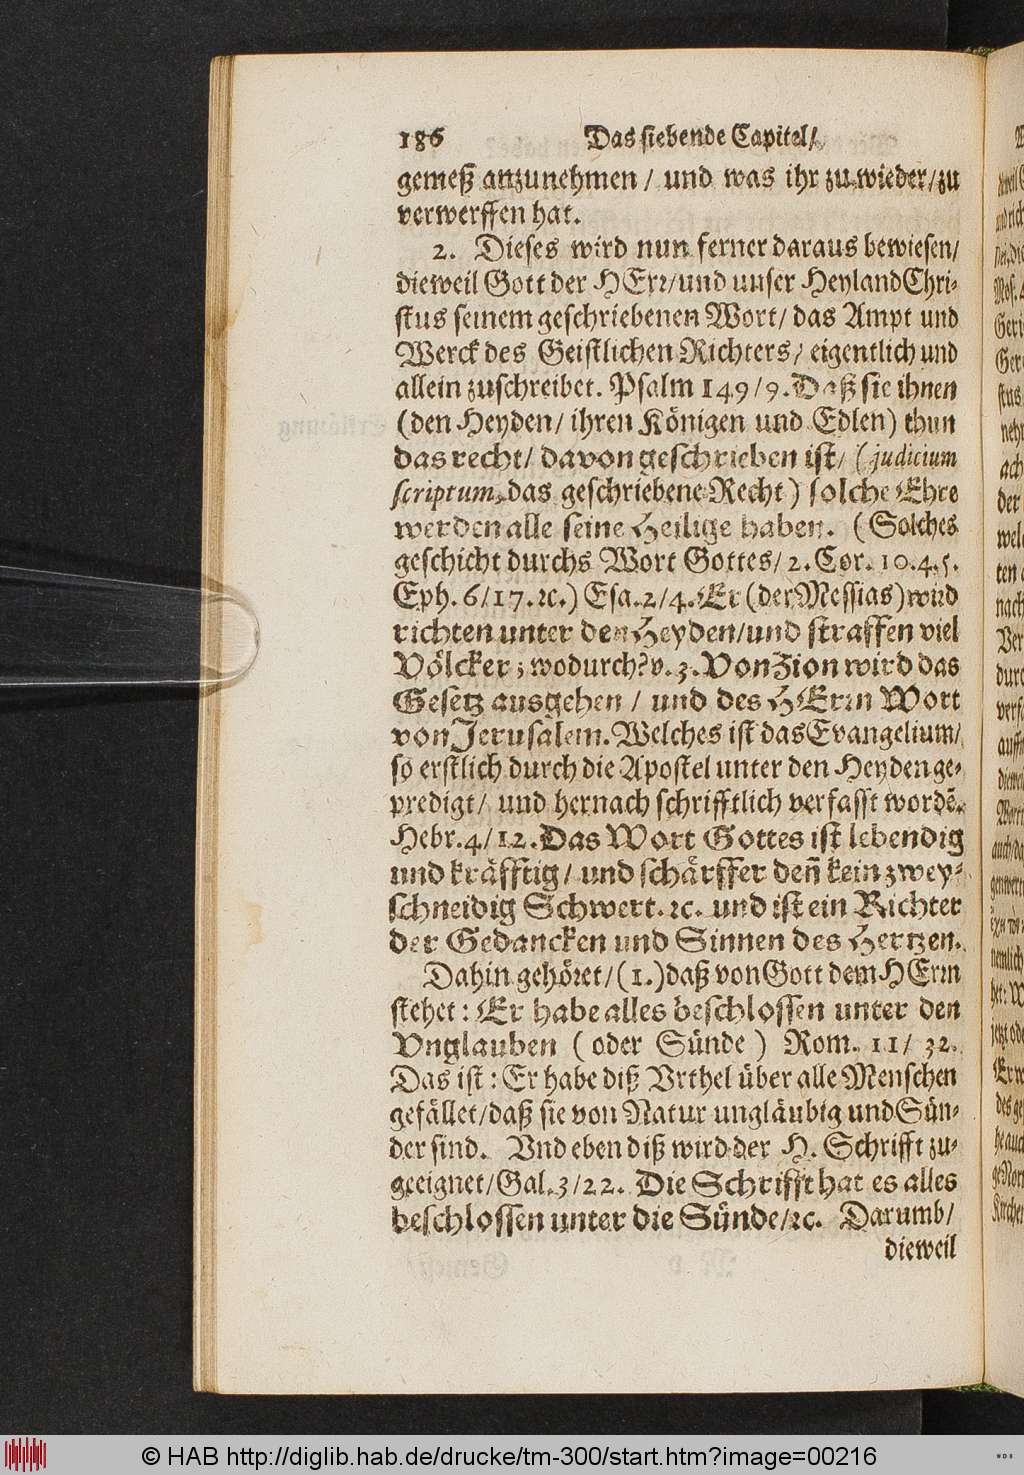 186 Das siebende Capitel/
gemeß anzunehmen / und was ihr zu wieder/zu
verwerffen hat.
2. Dieses wird nun ferner daraus bewiesen/
dieweil Gott der HErr/und unser Heyland Chri-
stus seinem geschriebenen Wort/ das Ampt und
Werck des Geistlichen Richters/ eigentlich und
allein zuschreibet. Psalm 149/9. Daß sie ihnen
(den Heyden/ ihren Königen und Edlen) thun
das recht/ davon geschrieben ist/ (judicium
scriptum, das geschriebene Recht) solche Ehre
werden alle seine Heilige haben. (Solches
geschicht durchs Wort Gottes/ 2. Cor. 10.4.5.
Eph. 6/17. ꝛc.) Esa. 2/4. Er (der Messias) wird
richten unter den Heyden/und straffen viel
Völcker; wodurch? v. 3. Von Zion wird das
Gesetz ausgehen / und des HErrn Wort
von Jerusalem. Welches ist das Evangelium/
so erstlich durch die Apostel unter den Heyden ge-
predigt/ und hernach schrifftlich verfasst wordẽ.
Hebr. 4/12. Das Wort Gottes ist lebendig
und kräfftig/ und schärffer deñ kein zwey-
schneidig Schwert. ꝛc. und ist ein Richter
der Gedancken und Sinnen des Hertzen.
Dahin gehöret/(1.) daß von Gott dem HErrn
stehet: Er habe alles beschlossen unter den
Vnglauben (oder Sünde) Rom. 11/ 32.
Das ist: Er habe diß Vrthel über alle Menschen
gefället/daß sie von Natur ungläubig und Sün-
der sind. Vnd eben diß wird der H. Schrifft zu-
geeignet/Gal. 3/22. Die Schrifft hat es alles
beschlossen unter die Sünde/ꝛc. Darumb/
dieweil
© HAB http://diglib.hab.de/drucke/tm-300/start.htm?image=00216